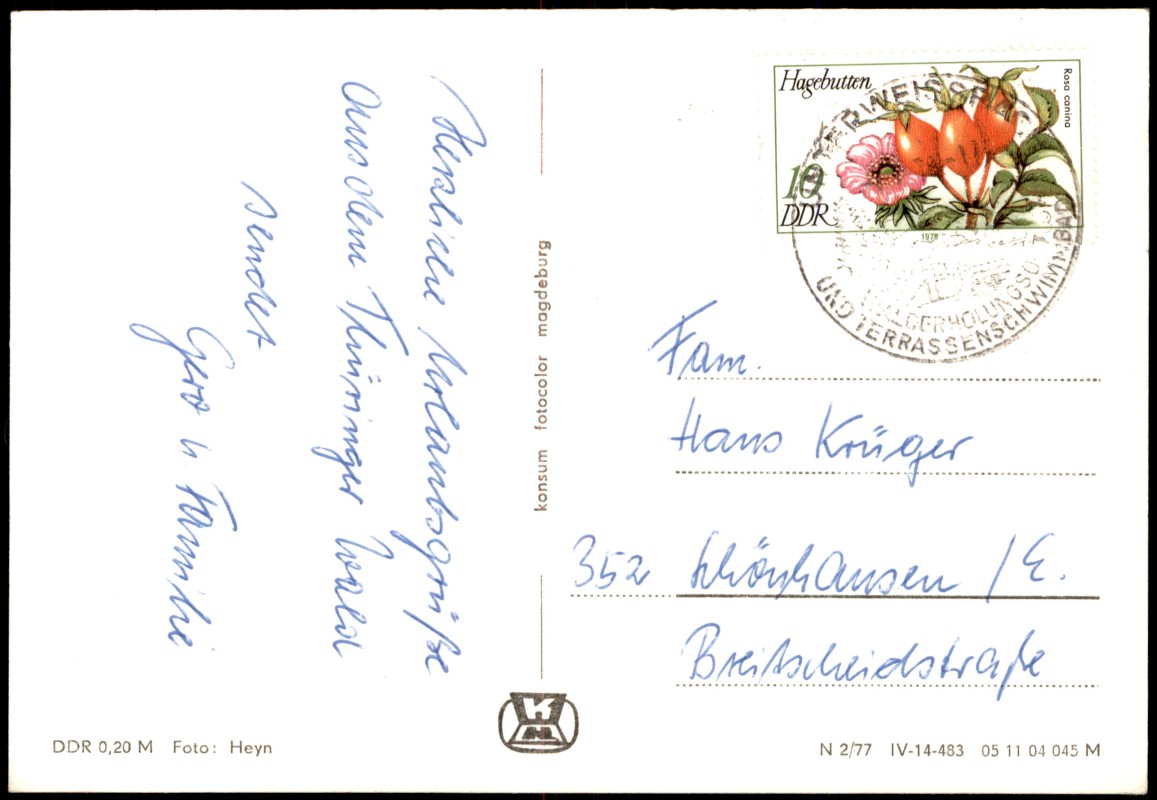 Herzliche Urlaubsgrüße
aus dem Thüringer Wald
sendet
Gero u. Familie
konsum fotocolor magdeburg
Hagebutten
Rosa canina
10
DDR
1978
UNTERWEISSBACH
WALDERHOLUNGSO
UND TERRASSENSCHWIMMBAD
Fam.
Hans Krüger
352 Schönhausen /E.
Breitscheidstraße
K
DDR 0,20 M Foto: Heyn
N 2/77 IV-14-483 05 11 04 045 M